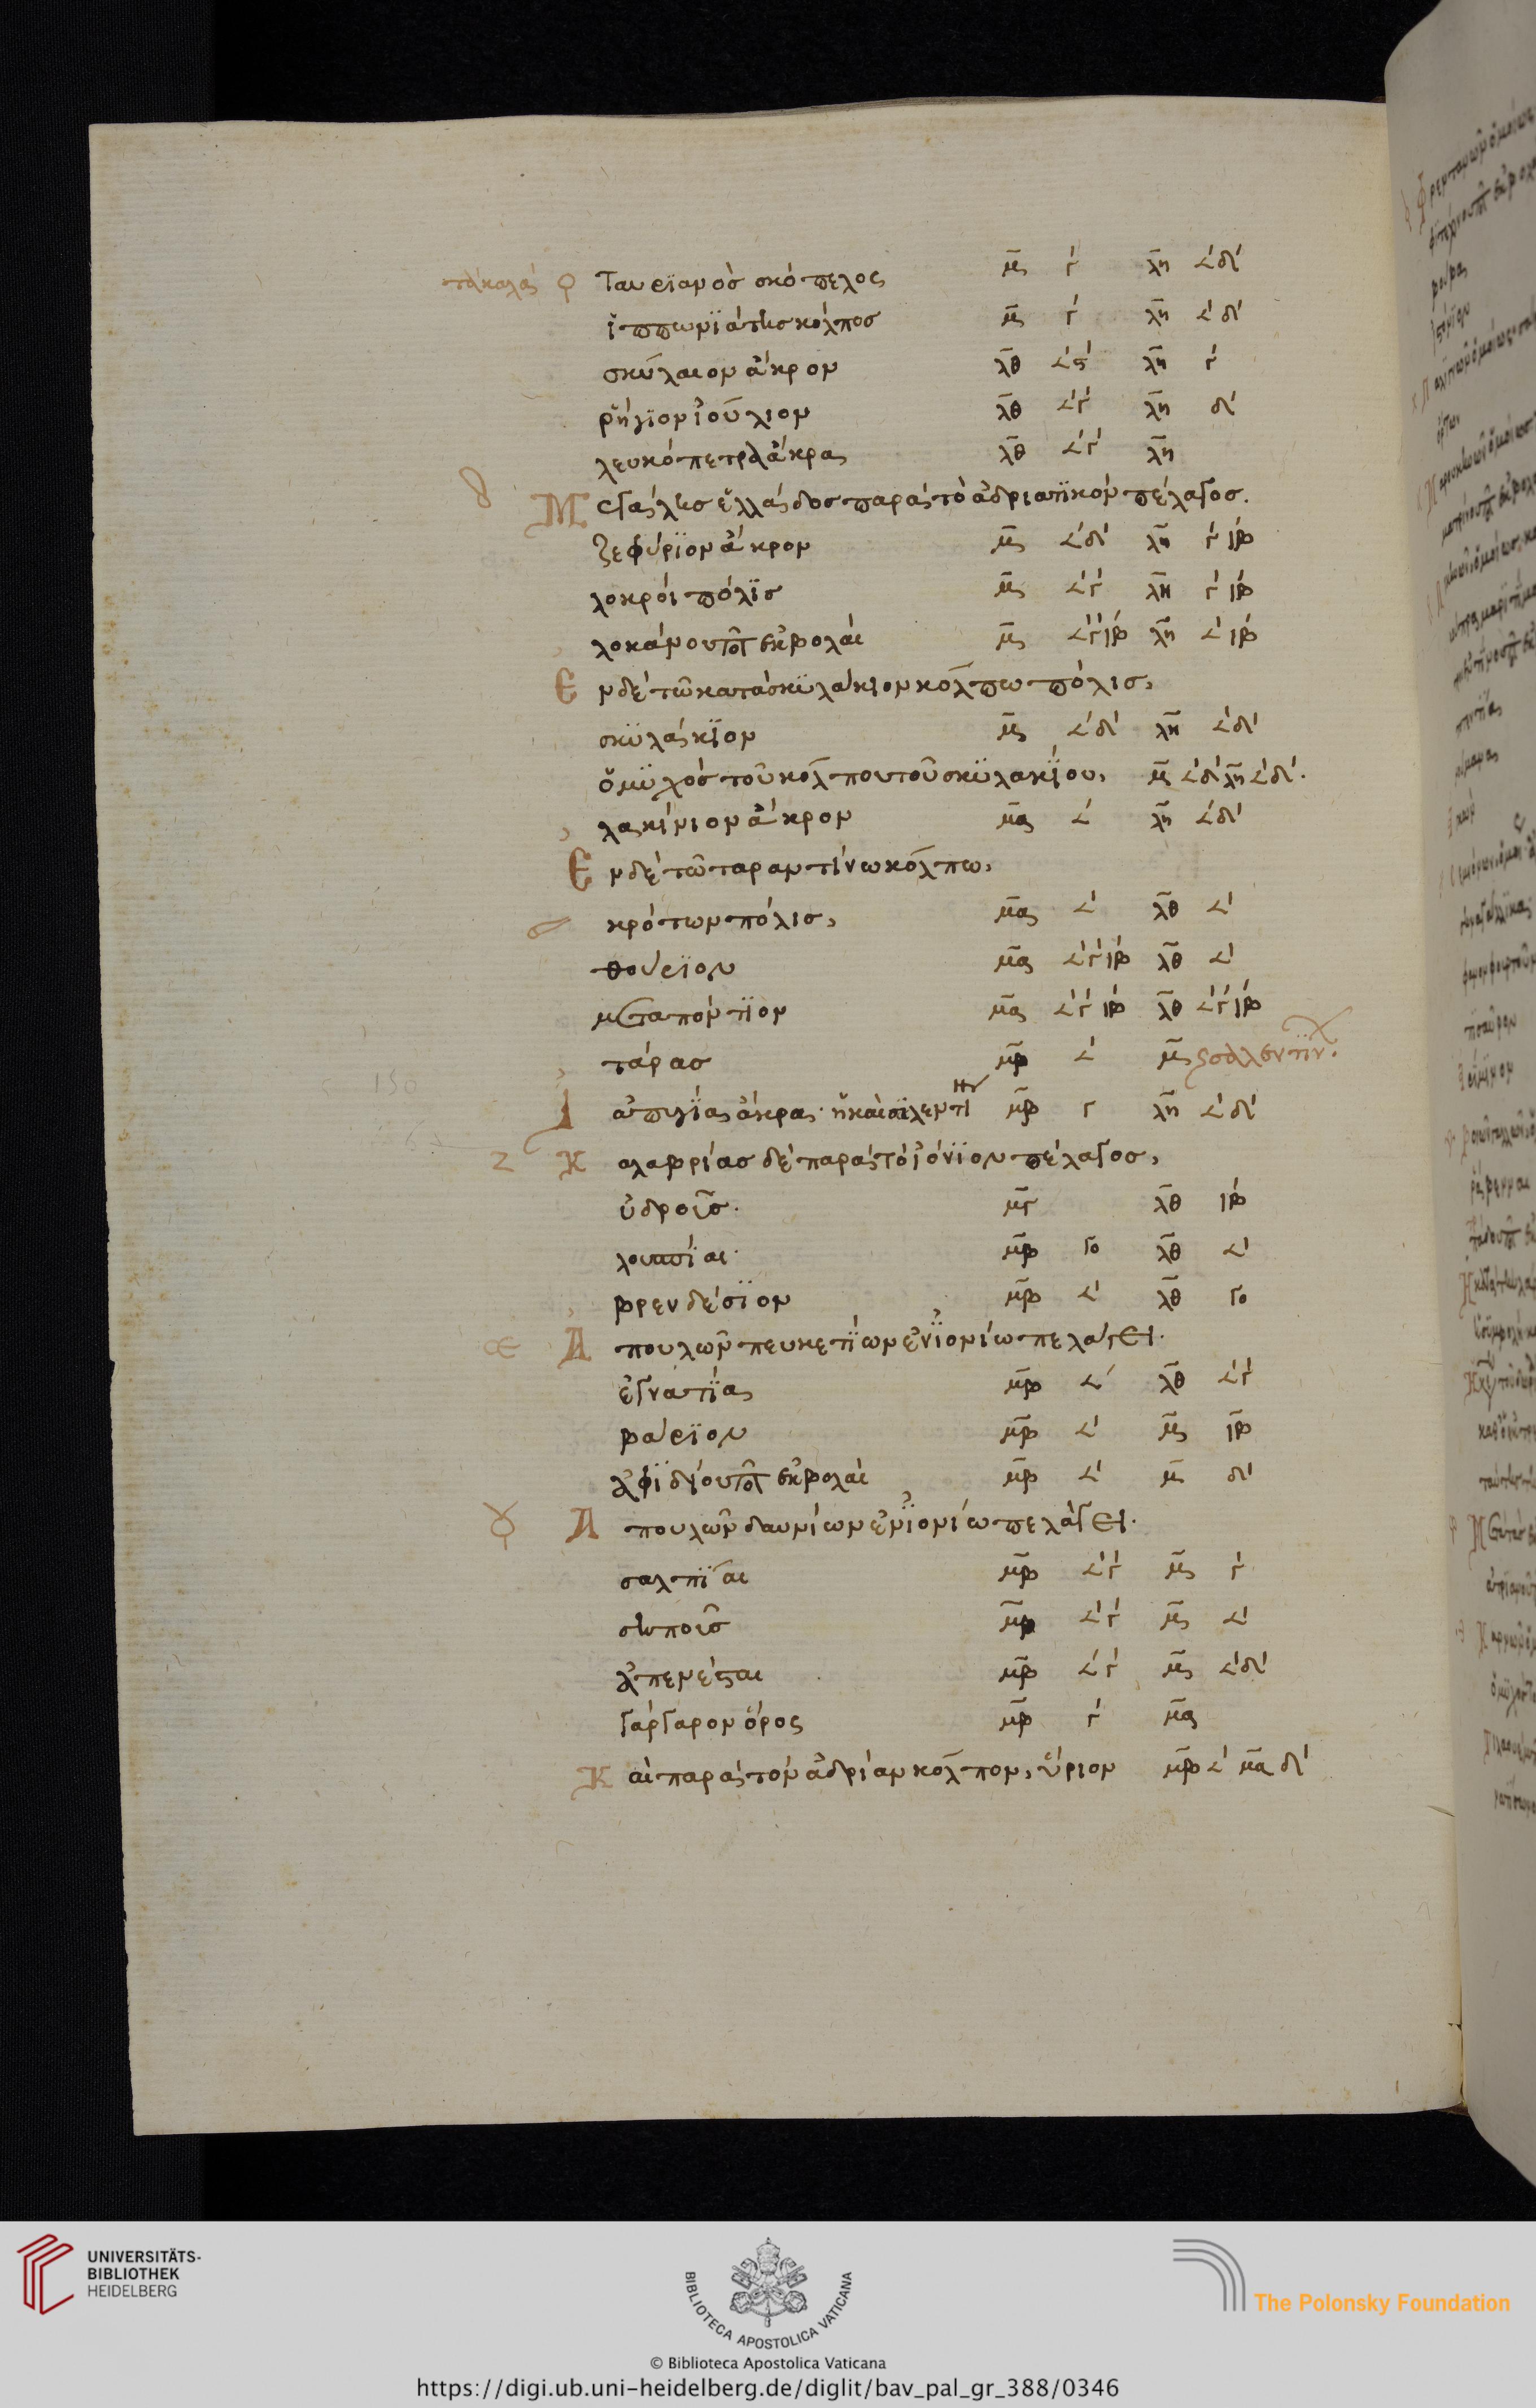 Ταυριανὸσ σκόπελος μ̅ς γ´ λ̅η ∠´δ´
ἱππωνϊάτησ κόλποσ μ̅ γ´ λ̅η ∠´δ´
σκύλαιον ἄκρον λ̅θ ∠´ λ̅η γ´
ῥήγϊον ἰούλιον λ̅θ ∠´γ´ λ̅η δ´
λευκόπετρα ἄκρα λ̅θ ∠´γ´ λ̅η
Μεγάλησ ἑλλάδοσ παρὰ τὸ ἀδριατϊκὸν πέλαγοσ.
ζεφύρϊον ἄκρον μ̅ ∠´δ´ λ̅η γ´ιβ´
λοκρόι πόλϊσ μ̅ ∠´γ´ λ̅η γ´ιβ´
λοκάνου ποτ ἐκβολὰι μ̅ ∠´γ´ιβ´ λ̅η ∠´ιβ´
Ε νδὲ τῶ κατὰ σκϋλάκιον κόλπω πόλισ,
σκϋλάκϊον μ̅ ∠´δ´ λ̅η ∠´δ´
ὁ μϋχὸσ τοῦ κόλπου τοῦ σκϋλακΐου, μ̅ ∠´δ´ λ̅η ∠´δ´.
λακίνιον ἄκρον μ̅α ∠´ λ̅η ∠´δ´
Ε νδὲ τῶ ταραντίνω κόλπω,
κρότων πόλισ, μ̅α ∠´ λ̅θ ∠´
θούρϊον μ̅α ∠´γ´ιβ´ λ̅θ ∠´
μεταπόντϊον μ̅α ∠´γ´ιβ´ λ̅θ ∠´γ´ιβ´
τάρασ μ̅β ∠´ μ̅ σαλεντϊν.
150
Ι απυγΐας ἄκρα. ἡ καὶ σαλεντί μ̅β γ λ̅η ∠´δ´
Ζ Κ αλαβρίασ δὲ παρὰ τὸ ἰόνϊον πέλαγοσ,
ὑδροῦσ. μ̅γ λ̅θ ιβ´
λουπΐαι. μ̅β γο λ̅θ ∠´
βρενδέσϊον μ̅β ∠´ λ̅θ γο
Α πουλῶν πευκετΐων ἐν ϊονίω πελάγει.
ἐγνατΐα μ̅β ∠´ λ̅θ ∠´γ´
βάρϊον μ̅β ∠´ μ̅ ιβ´
ἀφϊδίου ποτ ἐκβολὰι μ̅β ∠´ μ̅ δ´
Α πουλῶν δαυνίων ἐν ϊονίω πελάγει.
σαλπΐαι μ̅β ∠´γ´ μ̅ γ´
σηποῦσ μ̅β ∠´γ´ μ̅ ∠´
ἀπενέσται μ̅β ∠´γ´ μ̅ ∠´δ´
γάργαρον ὄρος μ̅β γ´ μ̅α
Κ αὶ παρὰ τὸν ἀδρίαν κόλπον, ὕριον μ̅β ∠´ μ̅α δ´
UNIVERSITÄTS-
BIBLIOTHEK
HEIDELBERG
BIBLIOTECA APOSTOLICA VATICANA
The Polonsky Foundation
© Biblioteca Apostolica Vaticana
https://digi.ub.uni-heidelberg.de/diglit/bav_pal_gr_388/0346